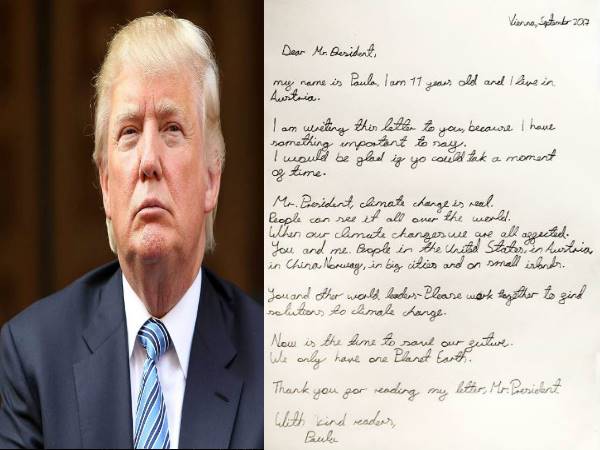 Vienna, September 2017
Dear Mr. President,
my name is Paula, I am 11 years old and I live in
Austria.
I am writing this letter to you, because I have
something important to say.
I would be glad if yo could tak a moment
of time.
Mr. President, climate change is real.
People can see it all over the world.
When our climate changes we are all affected.
You and me. People in the United States, in Austria,
in China, Norway, in big cities and on small islands.
You and other world leaders - Please work together to find
solutions to climate change.
Now is the time to save our future.
We only have one Planet Earth.
Thank you for reading my letter, Mr. President
With kind readers,
Paula